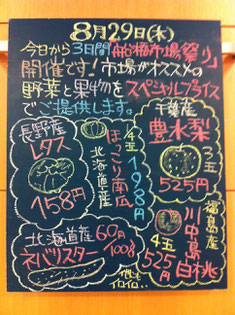 8月29日(水)
今日から3日間「船橋市場祭り」
開催です！市場がオススメの
野菜と果物をスペシャルプライス
でご提供します。
長野産
レタス
158円
北海道産
ほっこり南瓜
1/4玉
198円
千葉産
豊水梨
3玉
525円
福島産
川中島白桃
4玉
525円
北海道産
ネバリスター
60円
100g
他にも
イロイロ…